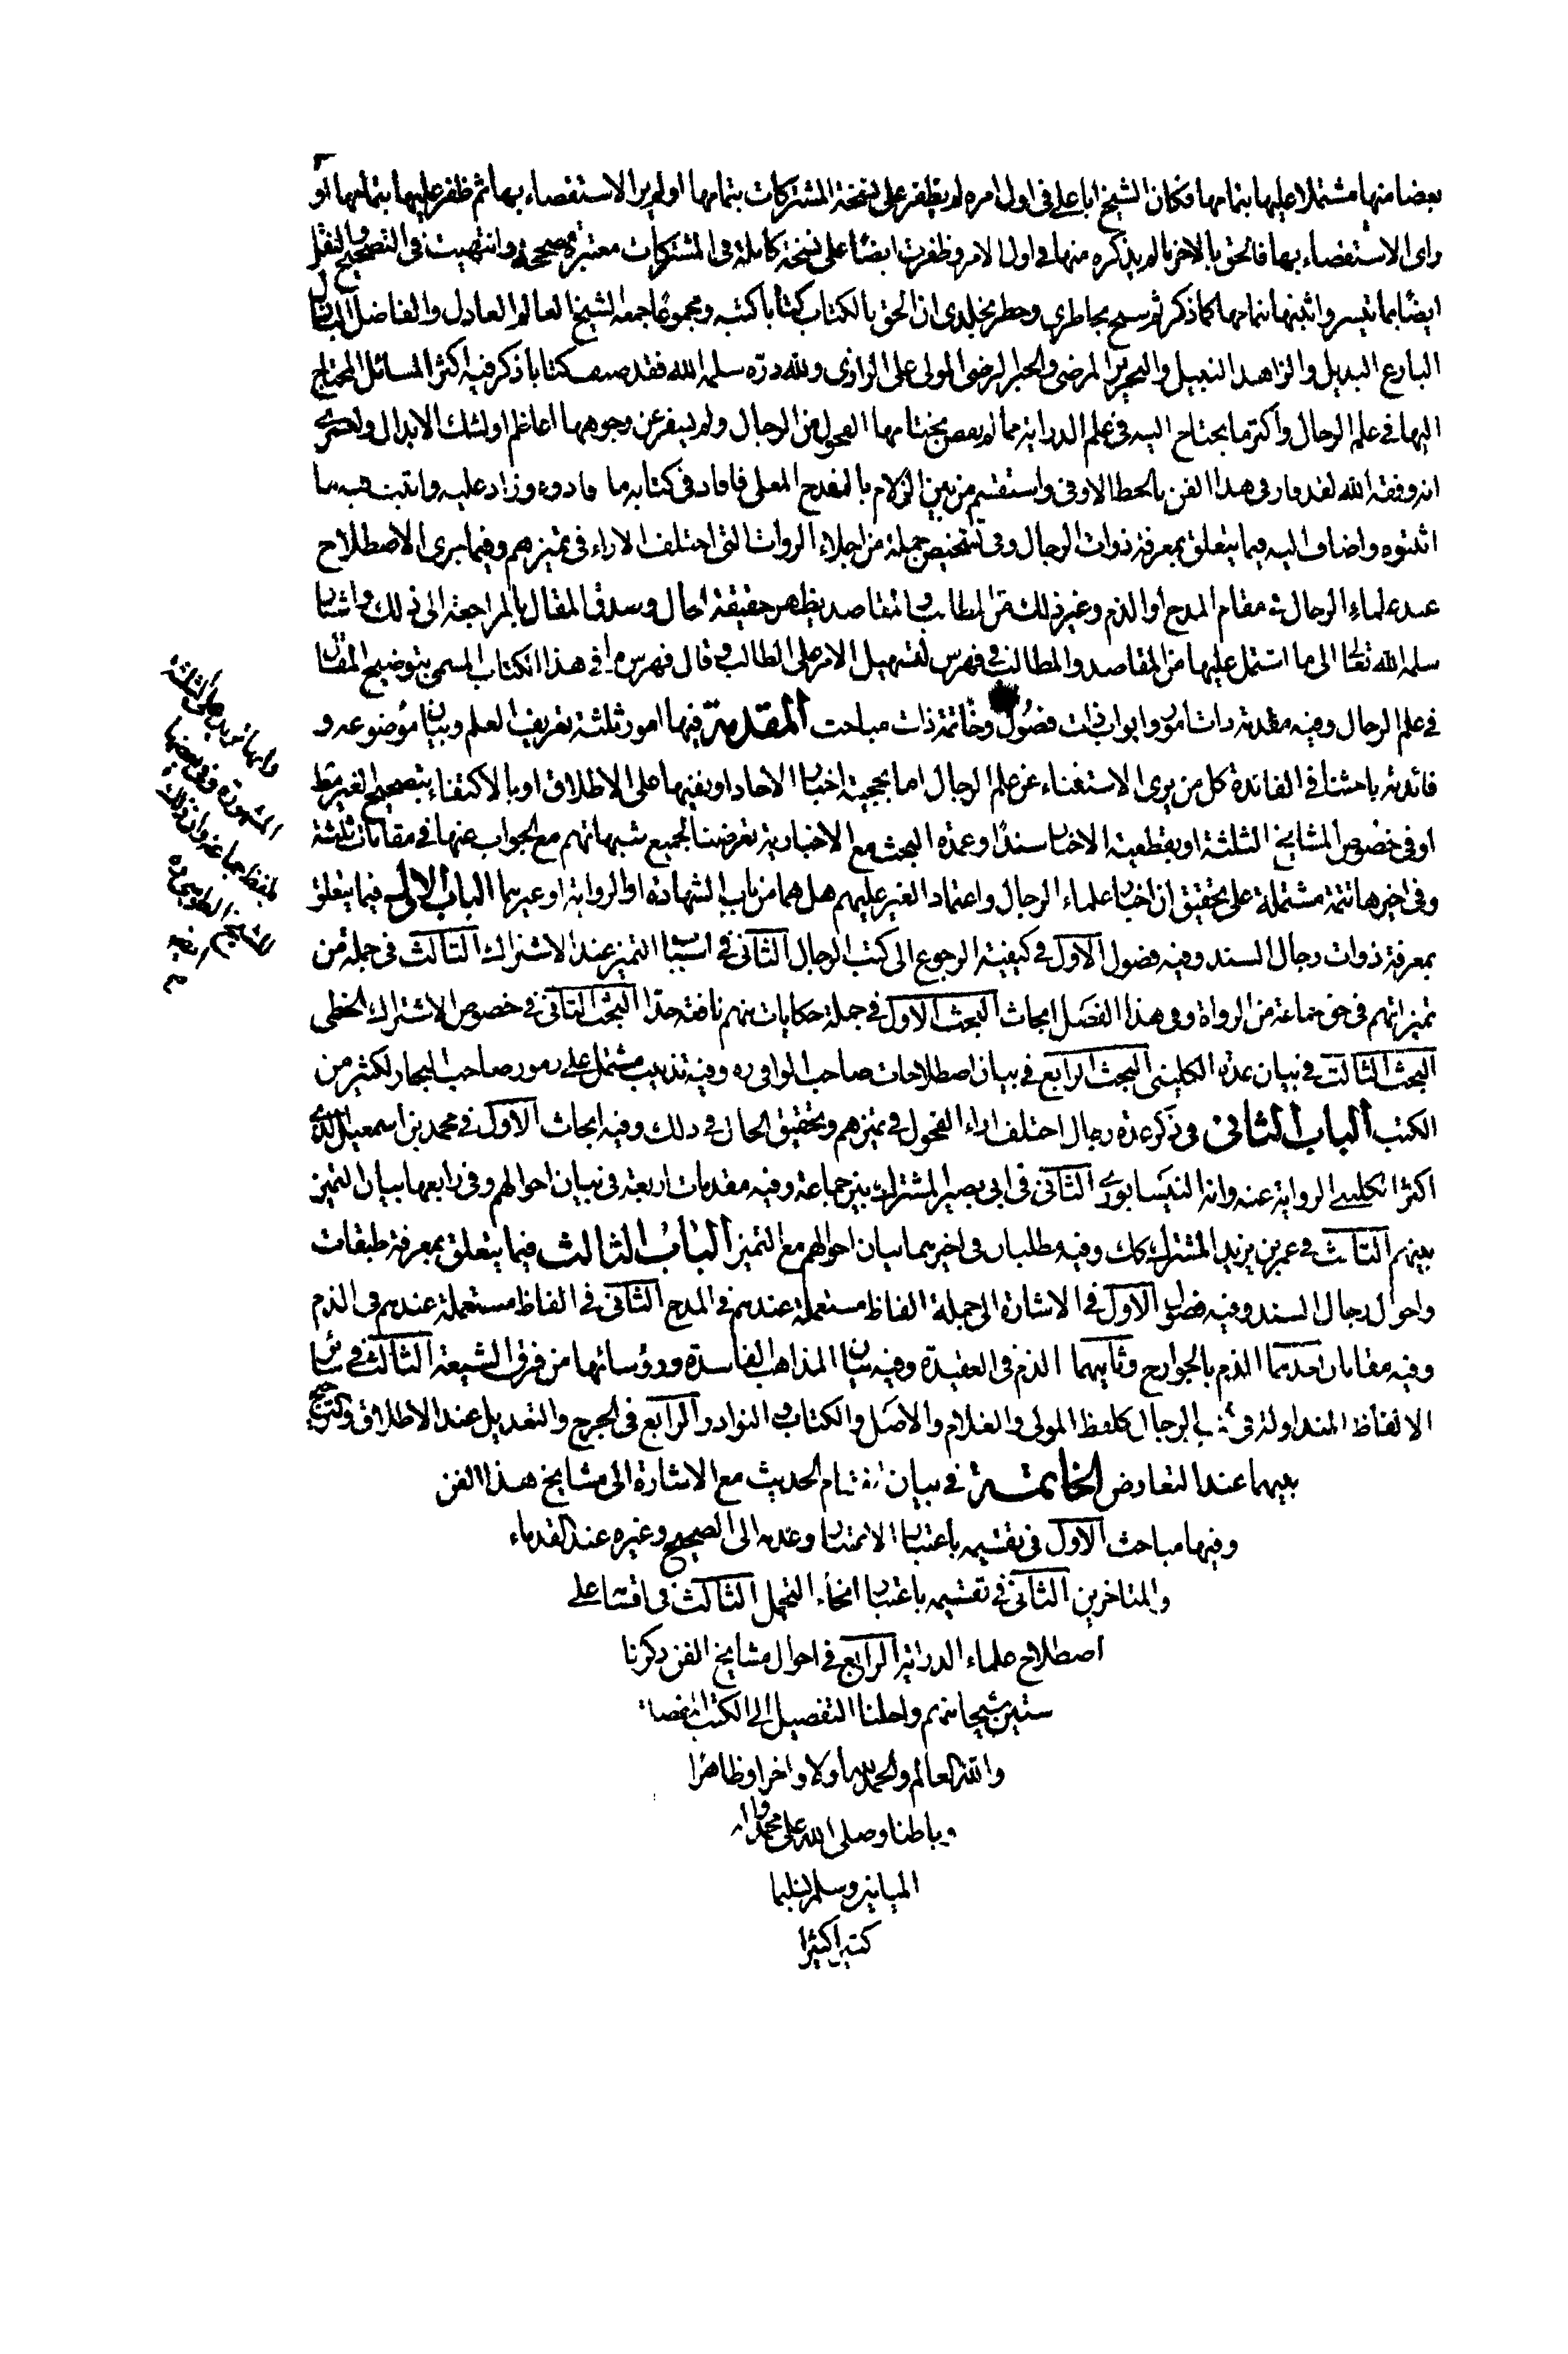 بعضا منها مشتملا عليها بتمامها فكان الشيخ ابا على فى اول امره لم يظفر على نسخة المشتركات بتمامها اولم ير الاستقصاء بها ثم ظفر عليها بتمامها او
راى الاستقصاء بها فالحق بالاخر ما لم يذكره منها فى اول الامر وظفرت ايضًا على نسخة كاملة فى المشتركات معتبرة مصححة وانتهيت فى التصحيح والنقل
ايضًا بما تيسر واثبتها بتمامها كما ذكر ثم سنح بخاطرى وخطر بخلدى ان الحق بالكتاب كتابا كتبه ومجموعا جمعه الشيخ العالم العادل والفاضل
البارع البديل والزاهد النبيل والنحرير المرضى والحبر الرضى المولى على الرازى ولله دره سلمه الله فقد صنف كتابا ذكر فيه اكثر المسائل المحتاج
اليها فى علم الرجال واكثر ما يحتاج اليه فى علم الدراية مما لم يفض بختامها الفحول من الرجال ولم يسفر عن وجوهها اعاظم اولئك الابدال ولعمرى
انه وفقه الله لقد فاز فى هذا الفن بالحظ الاوفى واستقسم من بين الازلام بالقدح المعلى فافاد فى كتابه ما فادوه وزاد عليه واثبت فيه ما
اثبتوه واضاف اليه فيما يتعلق بمعرفة ذوات الرجال وفى تشخيص جملة من اجلاء الروات التى اختلف الاراء فى تميزهم وفيما يرى الاصطلاح
عند علماء الرجال فى مقام المدح او الذم وغير ذلك من المطالب والمقاصد يظهر حقيقة الحال وصدق المقال بالمراجعة الى ذلك واشار
سلمه الله تعالى الى ما اشتمل عليها من المقاصد والمطالب فى فهرس لتسهيل الامر على الطالب فى قال فهرس ما فى هذا الكتاب المسمى بتوضيح المقال
فى علم الرجال وفيه مقدمة ذات امور وابواب ذات فصول وخاتمة ذات مباحث المقدمة فيها امور ثلثة تعريف العلم وبيان موضوعه و
فائدته باحثنا فى الفائدة كل من يرى الاستغناء عن علم الرجال اما بحجية اخبار الاحاد او بنفيها على الاطلاق او بالاكتفاء بتصحيح الغير مط
او فى خصوص المشايخ الثلثة او بقطعية الاخبار سندًا وعمدة البحث مع الاخبارية تعرضنا لجميع شبهاتهم مع الجواب عنها فى مقامات ثلثة
وفى اخيرها تتمة مشتملة على تحقيق ان اخبار علماء الرجال واعتماد الغير عليهم هل هما من باب الشهادة او الرواية او غيرهما الباب الاول فيما يتعلق
بمعرفة ذوات رجال السند وفيه فصول الاول فى كيفية الرجوع الى كتب الرجال الثانى فى اسباب التميز عند الاشتراك الثالث فى جملة من
تميزاتهم فى حق جماعة من الرواة وفى هذا الفصل ابحاث البحث الاول فى جملة حكايات منهم نافعة جدّا البحث الثانى فى خصوص الاشتراك الخطى
البحث الثالث فى بيان عدة الكلينى البحث الرابع فى بيان اصطلاحات صاحب الوافى ره وفيه تذهيب مشتمل على رموز صاحب البحار لكثير من
الكتب الباب الثانى فى ذكر عدة رجال اختلف اراء الفحول فى تميزهم وتحقيق الحال فى ذلك وفيه ابحاث الاول فى محمد بن اسمعيل الذى
اكثر الكلينى الرواية عنه وانه النيسابورى الثانى فى ابى بصير المشترك بين جماعة وفيه مقدمات اربعة فى بيان احوالهم وفى رابعها بيان التميز
بينهم الثالث فى عمر بن يزيد المشترك كك وفيه مطلبان فى اخيرهما بيان احوالهم مع التميز الباب الثالث فيما يتعلق بمعرفة طبقات
واحوال رجال السند وفيه فصول الاول فى الاشارة الى جملة الفاظ مستعملة عندهم فى المدح الثانى فى الفاظ مستعملة عندهم فى الذم
وفيه مقامان احدهما الذم بالجوارح وثانيهما الذم فى العقيدة وفيه بيان المذاهب الفاسدة ورؤسائها من فرق الشيعة الثالث فى سائر
الالفاظ المتداولة فى كتب الرجال كلفظ المولى والغلام والاصل والكتاب والنوادر الرابع فى الجرح والتعديل عند الاطلاق والترجيح
بينهما عند التعارض الخاتمة فى بيان اقسام الحديث مع الاشارة الى مشايخ هذا الفن
وفيها مباحث الاول فى تقسيمه باعتبار الاعتبار وعدمه الى الصحيح وغيره عند القدماء
والمتاخرين الثانى فى تقسيمه باعتبار انحاء التحمل الثالث فى اقسامه على
اصطلاح علماء الدراية الرابع فى احوال مشايخ الفن ذكرنا
ستين شيخا منهم واحلنا التفصيل الى الكتب المفصلة
والله العالم والحمد لله اولا واخرا وظاهرا
وباطنا وصلى الله على محمد واله
الميامين وسلم تسليما
كثيرا كثيرا
المشهورة وفى بعضها
للشيخ الطوسى ره